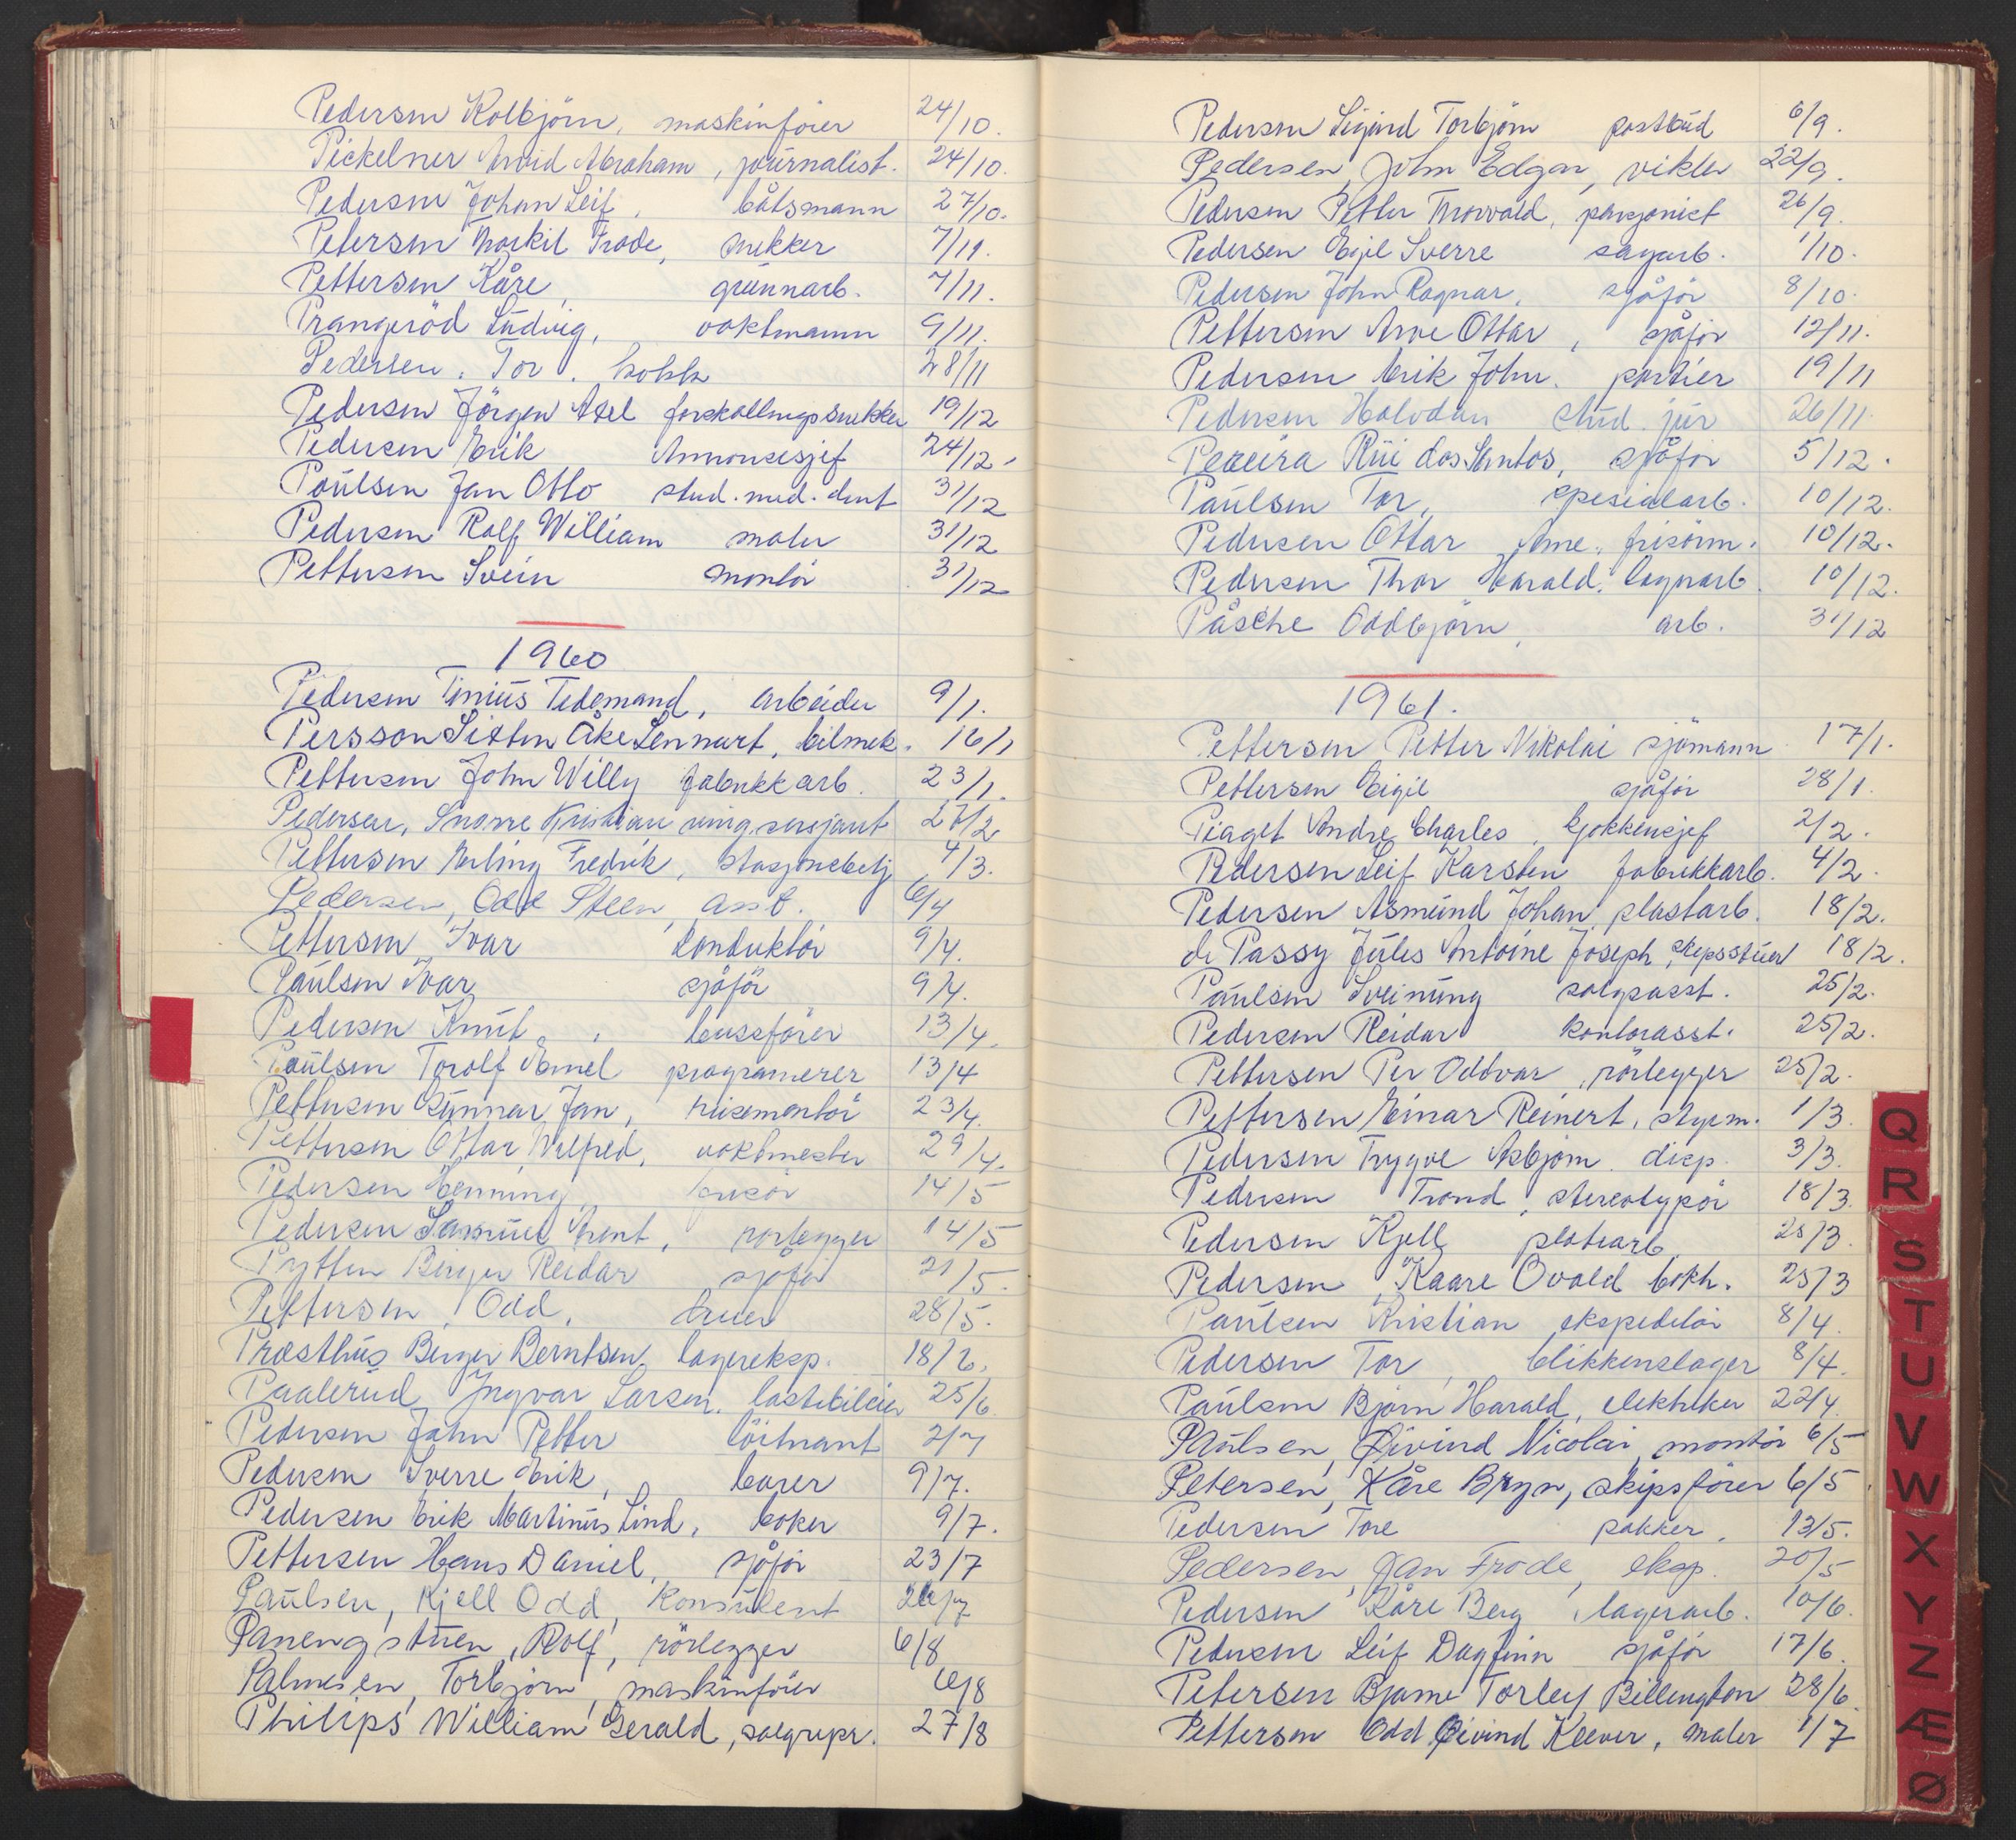 Pedersen Kolbjörn, maskinförer 24/10.
Pickelner Arvid Abraham, journalist. 24/10.
Pedersen Johan Leif, båtsmann 27/10.
Petersen Thorkil Frode, snekker 7/11.
Pettersen Kåre, grunnarb. 7/11.
Prangeröd Ludvig, vaktmann 9/11.
Pedersen, Tor, kokk 28/11
Pedersen Jörgen Axel forskallingssnekker 19/12
Pedersen Erik Annonsesjef 24/12.
Poulsen Jan Otto stud. med. dent 31/12
Pedersen Rolf William maler 31/12
Pettersen Svein montör 31/12
1960
Pedersen Tinius Tedemand, arbeider 9/1.
Persson Sixten Åke Lennart, bilmek. 16/1
Pettersen John Willy fabrikkarb. 23/1.
Pedersen, Snorre Kristian ving.sersjant 27/2
Pettersen Erling Fredrik, stasjonsbetj 4/3.
Pedersen, Odd Steen, asst. 6/4
Pettersen Ivar konduktör 9/4.
Paulsen Ivar sjåför 9/4.
Pedersen Knut, bussförer 13/4.
Poulsen Torolf Arnel programerer 13/4
Pettersen Gunnar Jan, heisemontör 23/4.
Pettersen Ottar Wilfred, vaktmester 29/4.
Pedersen Henning, frisör 14/5
Pedersen Samuel Arent, rörlegger 14/5
Prytten Birger Reidar sjåför 21/5.
Pettersen, Odd, 28/5.
Præsthus Birger Berntsen, lagereksp. 18/6.
Paalerud Yngvar Larsen, lastebileier 25/6.
Pedersen John Petter löitnant 2/7
Pedersen Sverre Erik, borer 9/7.
Pedersen Erik Martinus Lind, baker 9/7.
Pettersen Hans Daniel, sjåför 23/7
Paulsen, Kjell Odd, Konsulent 26/7
Panengstuen, Rolf, rörlegger 6/8
Palmesen, Torbjörn, maskinförer 6/8
Philips William Gerald, salgrepr. 27/8
Pedersen Sigurd Torbjörn postbud 6/9.
Pedersen, John Edgar, vikler 22/9.
Pedersen Petter Thorvald, pensjonist 26/9.
Pedersen Egil Sverre sagarb. 1/10.
Pedersen John Ragnar, sjåför 8/10.
Pettersen Arve Ottar, sjåför 12/11.
Pedersen Erik John, portier 19/11
Pedersen Halvdan stud. jur 26/11.
Pereira Rui dos Santos, sjåför 5/12.
Paulsen Tor, spesialarb. 10/12.
Pedersen Ottar Arne, frisörm. 10/12.
Pedersen Thor Harald, lagerarb. 10/12.
Påsche Oddbjörn, arb. 31/12
1961.
Pettersen Petter Nikolai sjömann 17/1.
Pettersen Eigil sjåför 28/1.
Piaget Andre Charles, kjökkensjef 2/2.
Pedersen Leif Karsten fabrikkarb. 4/2.
Pedersen Asmund Johan plastarb. 18/2.
de Passy Jules Antoine Joseph, skipsstuer 18/2.
Paulsen Sveinung salgsasst. 25/2.
Pedersen Reidar kontorasst. 25/2.
Pettersen Per Oddvar, rörlegger 25/2.
Pettersen Einar Reinert, styrm. 1/3.
Pedersen Trygve Asbjörn. disp. 3/3.
Pedersen Trond, stereotypör 18/3.
Pedersen Kjell platearb. 25/3.
Pedersen, Kaare Ovald bokh. 25/3
Paulsen Kristian ekspeditör 8/4.
Pedersen Tor, blikkenslager 8/4.
Paulsen Björn Harald, elektriker 22/4.
Paulsen, Øivind Nicolai, montör 6/5
Petersen, Kåre Bryn, skipsförer 6/5.
Pedersen Tore pakker. 13/5.
Pedersen, Jan Frode, eksp. 20/5
Pedersen Kåre Berg, lagerarb. 10/6.
Pedersen Leif Dagfinn sjåför 17/6.
Petersen Bjarne Torley Billington 28/6.
Pettersen Odd Øivind Klever, maler 1/7
Q
R
S
T
U
V
W
X
Y
Z
Æ
Ø